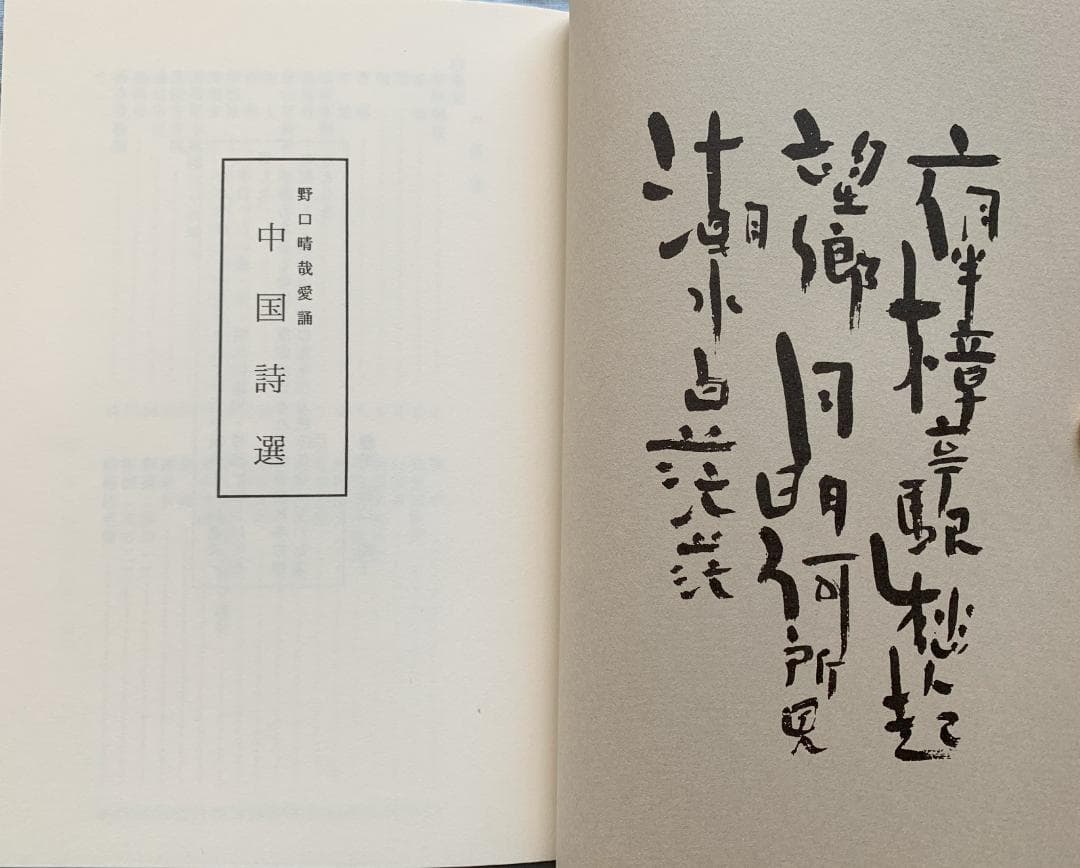 夜半樟亭駅愁人起
望郷月明何所見
潮水白茫茫
野口晴哉愛誦
中国詩選